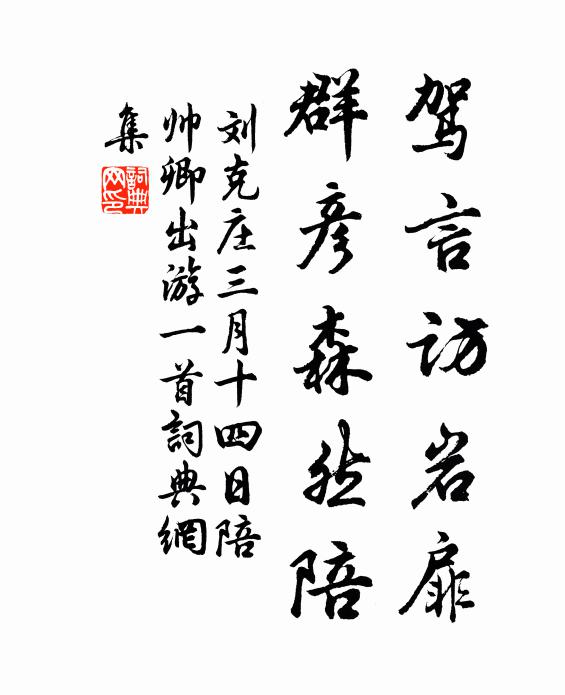 驾言访岩扉
群彦森然陪
刘克庄三月十四日陪
帅卿出游一首詞典網
集
詞典网印